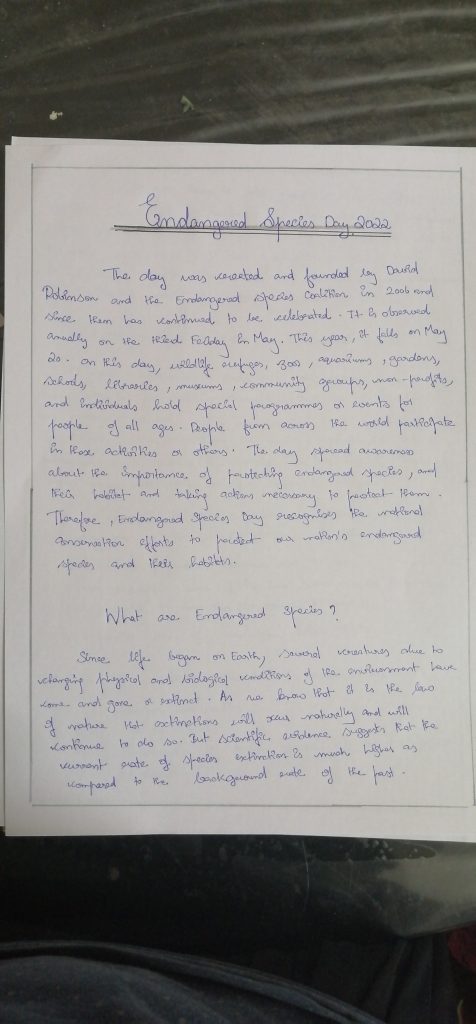 Endangered Species Day, 2022
The day was created and founded by David
Robinson and the Endangered species Coalition in 2006 and
since them has continued to be celebrated. It is observed
anually on the third Friday in May. This year, it falls on May
20. On this day, wildlife refuges, zoos, aquariums, gardens,
schools, libraries, museums, community groups, non-profits,
and individuals hold special programmes or events for
people of all ages. People from across the world participate
in these activities or others. The day spread awareness
about the importance of protecting endangered species, and
their habitat and taking actions necessary to protect them.
Therefore, Endangered Species Day recognises the national
conservation efforts to protect our nation's endangered
species and their habitats.
What are Endangered Species?
Since life began on Earth, several creatures due to
changing physical and biological conditions of the environment have
come and gone or extinct. As we know that it is the law
of nature that extinctions will occur naturally and will
continue to do so. But scientific evidence suggests that the
current rate of species extinction is much higher as
compared to the background rate of the past.